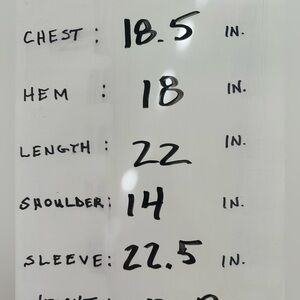 CHEST : 18.5 IN.
HEM : 18 IN.
LENGTH : 22 IN.
SHOULDER: 14 IN.
SLEEVE: 22.5 IN.